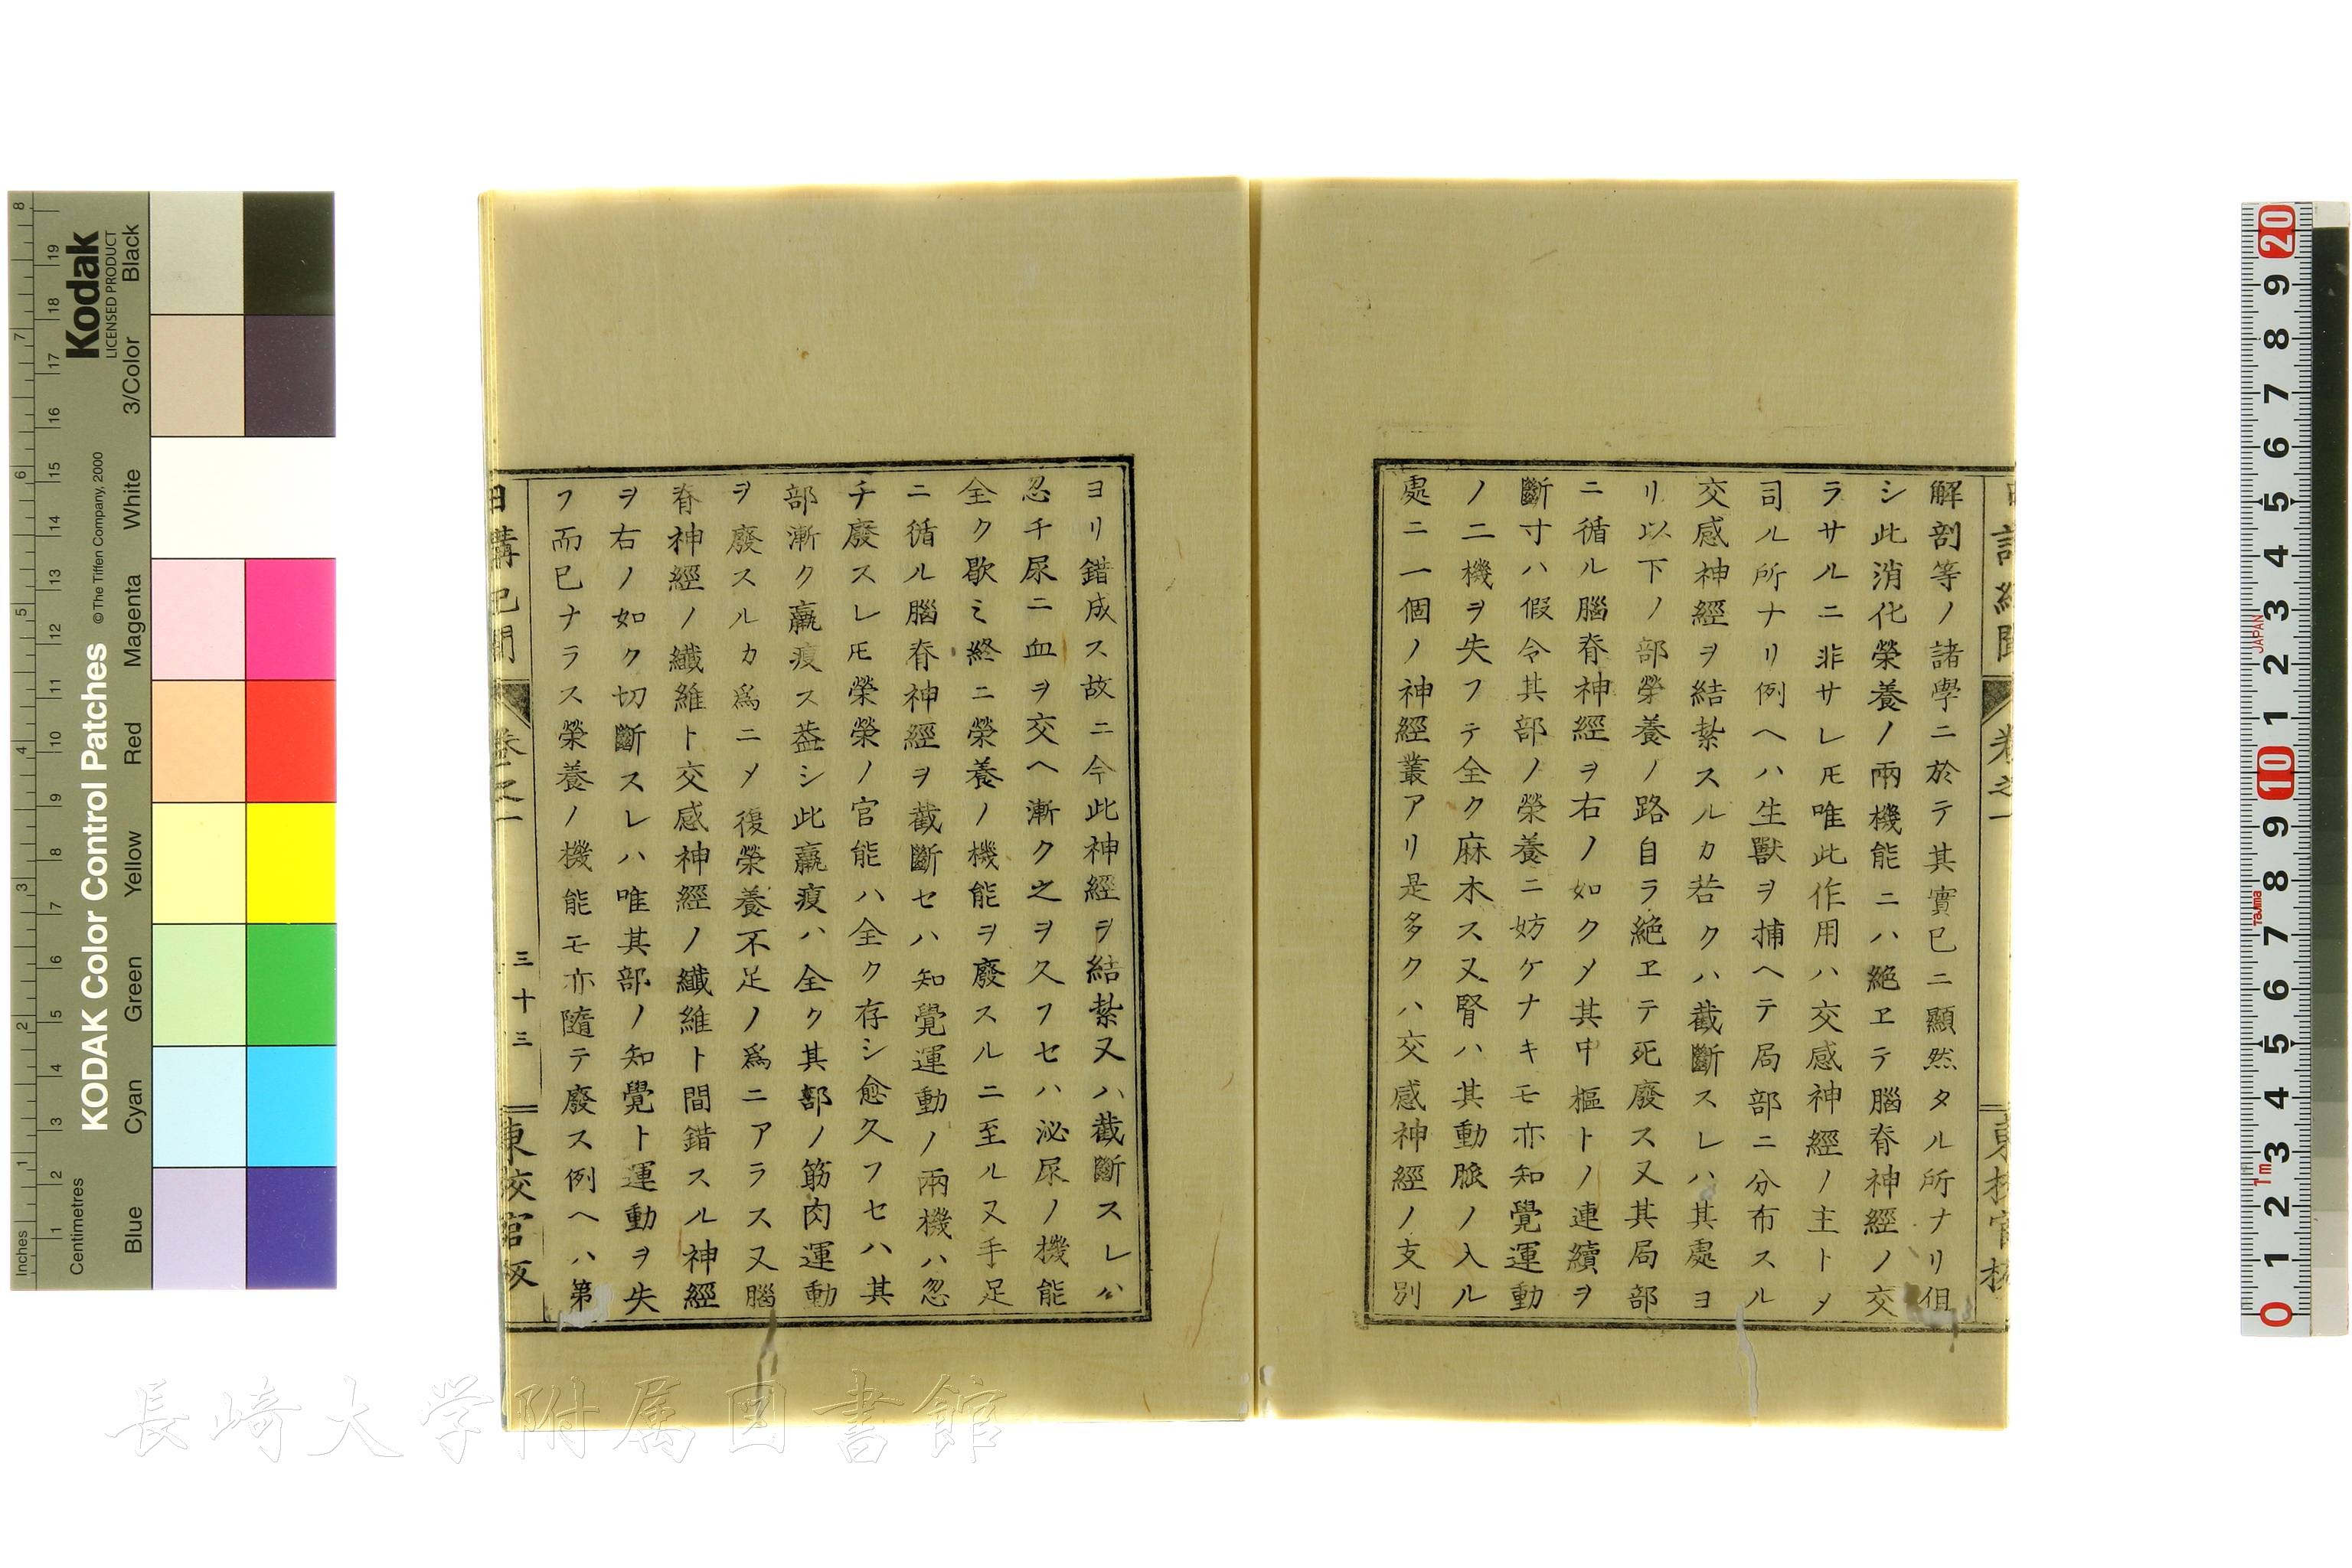 解剖等ノ諸學ニ於テ其實已ニ顯然タル所ナリ但
シ此消化榮養ノ兩機能ニハ絶ヱテ腦脊神經ノ交
ラサルニ非サレ𪜈唯此作用ハ交感神經ノ主トメ
司ル所ナリ例ヘハ生獸ヲ捕ヘテ局部ニ分布スル
交感神經ヲ結紮スルカ若クハ截斷スレハ其處ヨ
リ以下ノ部榮養ノ路自ラ絶ヱテ死廢ス又其局部
ニ循ル腦脊神經ヲ右ノ如クメ其中樞トノ連續ヲ
斷寸ハ假令其部ノ榮養ニ妨ケナキモ亦知覺運動
ノ二機ヲ失フテ全ク麻木ス又腎ハ其動脈ノ入ル
處ニ一個ノ神經叢アリ是多クハ交感神經ノ支別
ヨリ錯成ス故ニ今此神經ヲ結紮又ハ截斷スレハ
忽チ尿ニ血ヲ交ヘ漸ク之ヲ久フセハ泌尿ノ機能
全ク歇ミ終ニ榮養ノ機能ヲ廢スルニ至ル又手足
ニ循ル腦脊神經ヲ截斷セハ知覺運動ノ兩機ハ忽
チ廢スレ𪜈榮榮ノ官能ハ全ク存シ愈久フセハ其
部漸ク羸瘦ス葢シ此羸瘦ハ全ク其部ノ筋肉運動
ヲ廢スルカ爲ニメ復榮養不足ノ爲ニアラス又腦
脊神經ノ纖維ト交感神經ノ纖維ト間錯スル神經
ヲ右ノ如ク切斷スレハ唯其部ノ知覺ト運動ヲ失
フ而已ナラス榮養ノ機能モ亦隨テ廢ス例ヘハ第
日講記聞 卷之一 三十三 東校官版
KODAK Color Control Patches
© The Tiffen Company, 2000
Kodak
LICENSED PRODUCT
Inches
Centimetres
Blue Cyan Green Yellow Red Magenta White 3/Color Black
長崎大学附属図書館
JAPAN
Tajima
1m